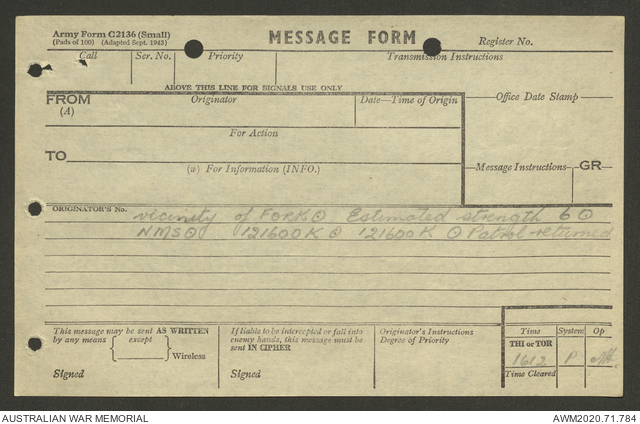 Army Form C2136 (Small)
(Pads of 100) (Adapted Sept. 1943)
MESSAGE FORM
Register No.
Call
Ser. No.
Priority
Transmission Instructions
ABOVE THIS LINE FOR SIGNALS USE ONLY
FROM
(A)
Originator
Date—Time of Origin
Office Date Stamp
For Action
TO
(W) For Information (INFO.)
Message Instructions
GR
ORIGINATOR'S No.
vicinity of FORK ⊙ Estimated strength 6 ⊙
NMS ⊙ 121600K ⊙ 121600K ⊙ Patrol returned
This message may be sent AS WRITTEN
by any means { except } Wireless
Signed
If liable to be intercepted or fall into
enemy hands, this message must be
sent IN CIPHER
Signed
Originator's Instructions
Degree of Priority
Time
System
Op
THI or TOR
1612
P
Time Cleared
AUSTRALIAN WAR MEMORIAL
AWM2020.71.784